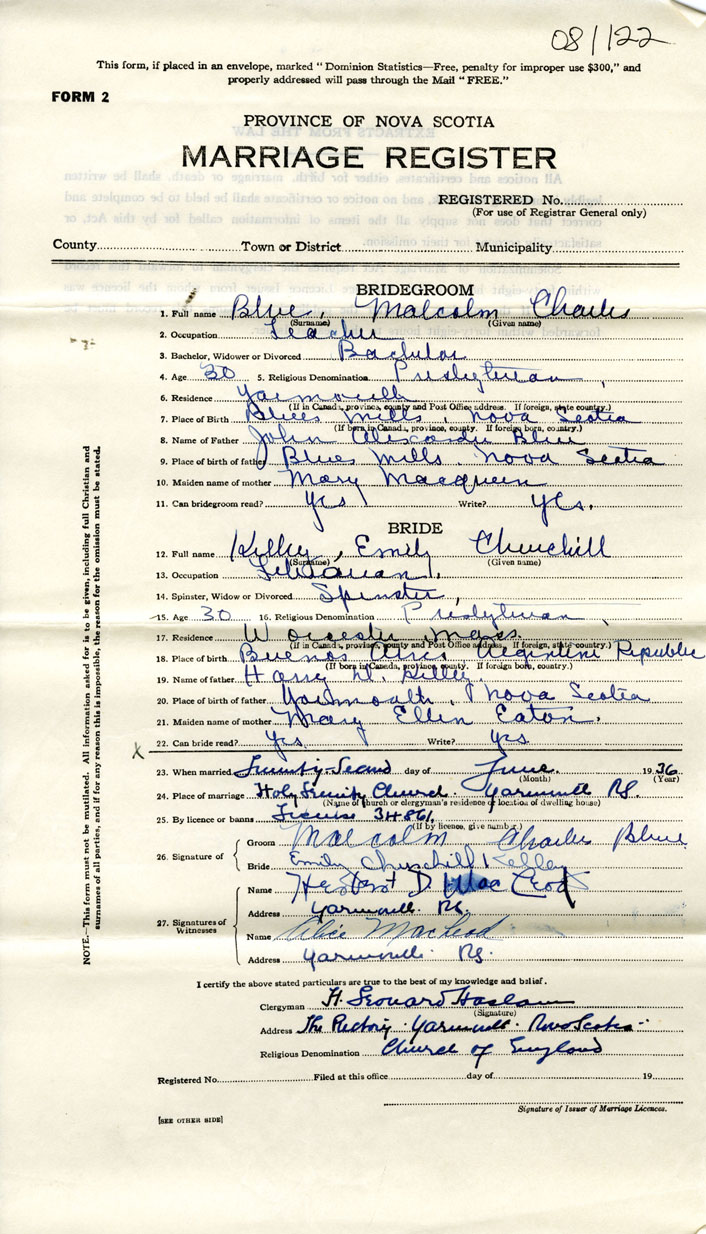 081122
This form, if placed in an envelope, marked "Dominion Statistics—Free, penalty for improper use $300," and
properly addressed will pass through the Mail "FREE."
FORM 2
PROVINCE OF NOVA SCOTIA
MARRIAGE REGISTER
REGISTERED No.
(For use of Registrar General only)
County Town or District Municipality
BRIDEGROOM
1. Full name Blue, Malcolm Charles
(Surname) (Given name)
2. Occupation Teacher
3. Bachelor, Widower or Divorced Bachelor
4. Age 30 5. Religious Denomination Presbyterian
6. Residence Yarmouth
(If in Canada, province, county and Post Office address. If foreign, state country.)
7. Place of Birth Blues Mills Nova Scotia
(If born in Canada, province, county. If foreign born, country.)
8. Name of Father John Alexander Blue
9. Place of birth of father Blues Mills Nova Scotia
10. Maiden name of mother Mary Macqueen
11. Can bridegroom read? Yes Write? Yes.
BRIDE
12. Full name Kelley, Emily Churchill
(Surname) (Given name)
13. Occupation Librarian
14. Spinster, Widow or Divorced Spinster
15. Age 30 16. Religious Denomination Presbyterian
17. Residence Worcester Mass.
(If in Canada, province, county and Post Office address. If foreign, state country.)
18. Place of birth Buenos Aires Argentine Republic
(If born in Canada, province, county. If foreign born, country.)
19. Name of father Harry D. Kelley
20. Place of birth of father Yarmouth, Nova Scotia
21. Maiden name of mother Mary Ellen Eaton.
22. Can bride read? Yes Write? Yes
X
23. When married Twenty-Second day of June. 1936
(Month) (Year)
24. Place of marriage Holy Trinity Church. Yarmouth NS.
(Name of church or clergyman's residence or location of dwelling house)
25. By licence or banns License 34861.
(If by licence, give number.)
26. Signature of Groom Malcolm Charles Blue
Bride Emily Churchill Kelley
27. Signatures of Witnesses
Name Herbert D. MacLeod
Address Yarmouth NS.
Name Alice MacLeod
Address Yarmouth NS.
I certify the above stated particulars are true to the best of my knowledge and belief.
Clergyman H. Leonard Haslam
(Signature)
Address The Rectory. Yarmouth. Nova Scotia
Religious Denomination Church of England
Registered No. Filed at this office day of 19
Signature of Issuer of Marriage Licences.
[SEE OTHER SIDE]
NOTE.—This form must not be mutilated. All information asked for is to be given, including full Christian and
surnames of all parties, and if for any reason this is impossible, the reason for the omission must be stated.